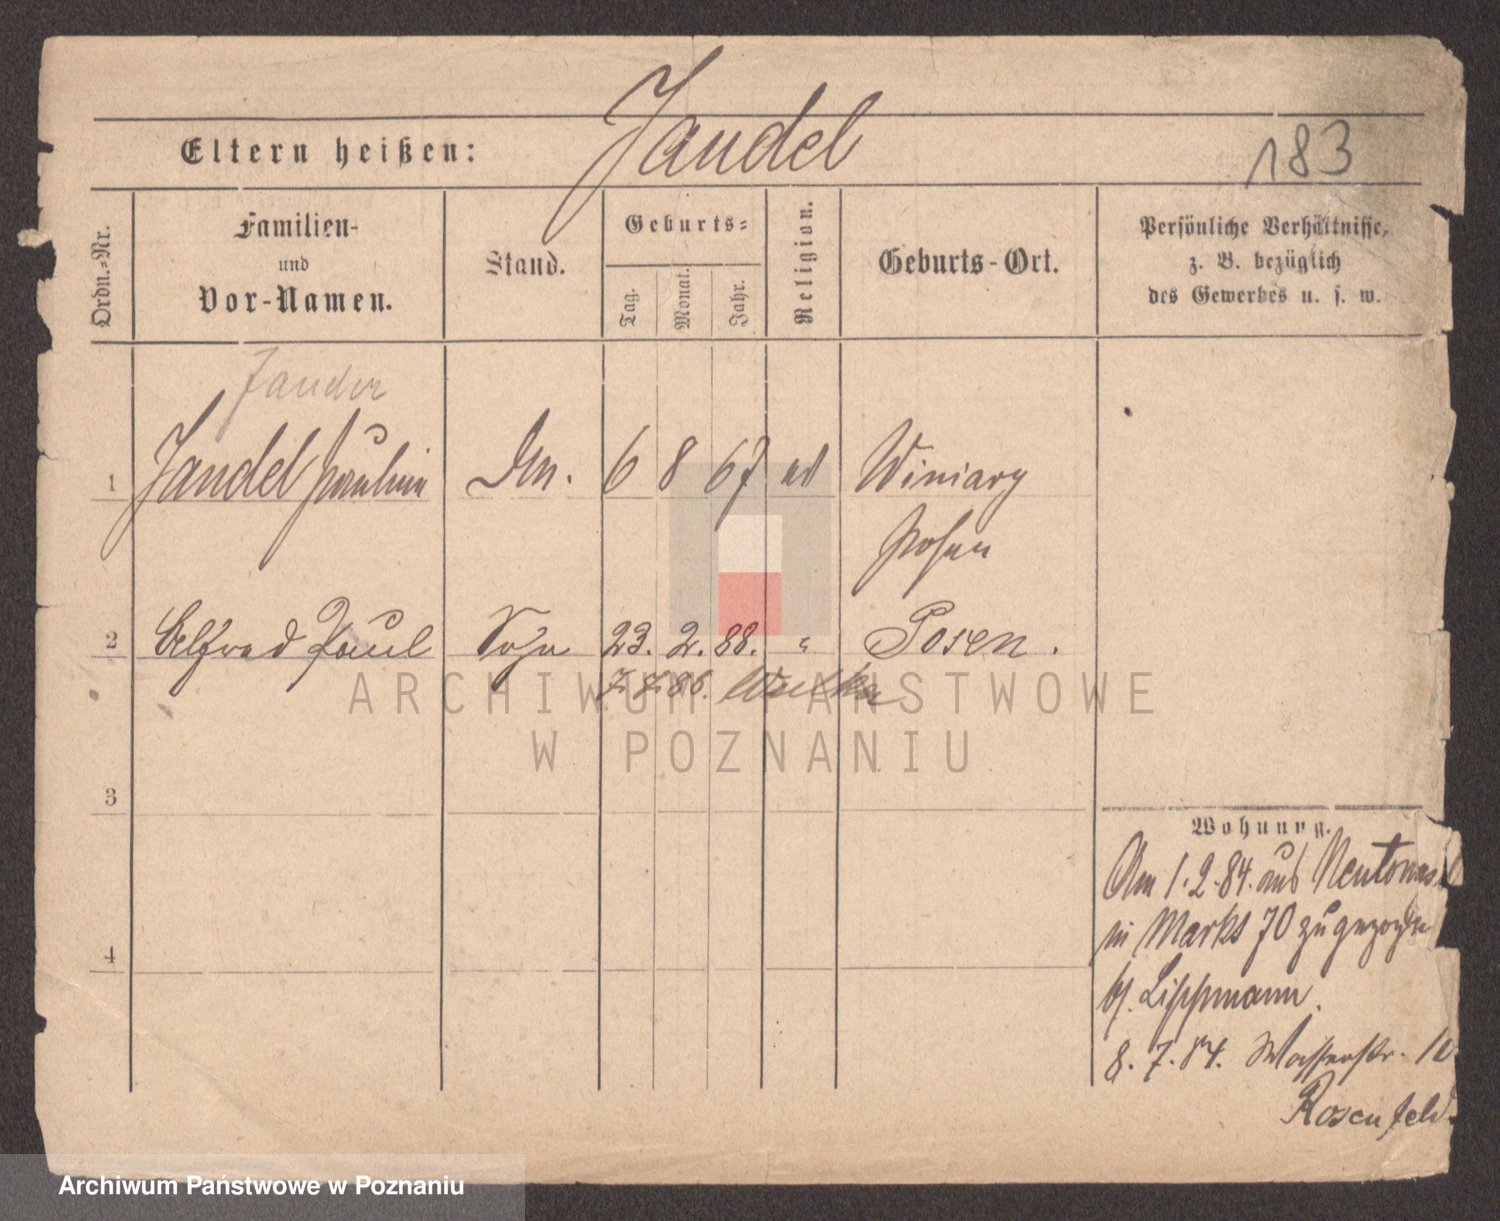 Jandel
Eltern heißen:
183
Ordn.-Nr.
Familien-
und
Vor-Namen.
Stand.
Geburts-
Tag.
Monat.
Jahr.
Religion.
Geburts-Ort.
Persönliche Verhältnisse,
z. B. bezüglich
des Gewerbes u. s. w.
Jander
1 Jandel Pauline 6 8 67 Winiary
Posen
2 Alfred Paul Sohn 23. 2. 88. " Posen.
86.
ARCHIWUM PAŃSTWOWE
W POZNANIU
3
Wohnung.
Am 1.2.84. aus Neutomis
in Markt 70 zugezogen
b/. Lippmann.
4
8.7.84. Wasserstr.
Rosenfeld
Archiwum Państwowe w Poznaniu